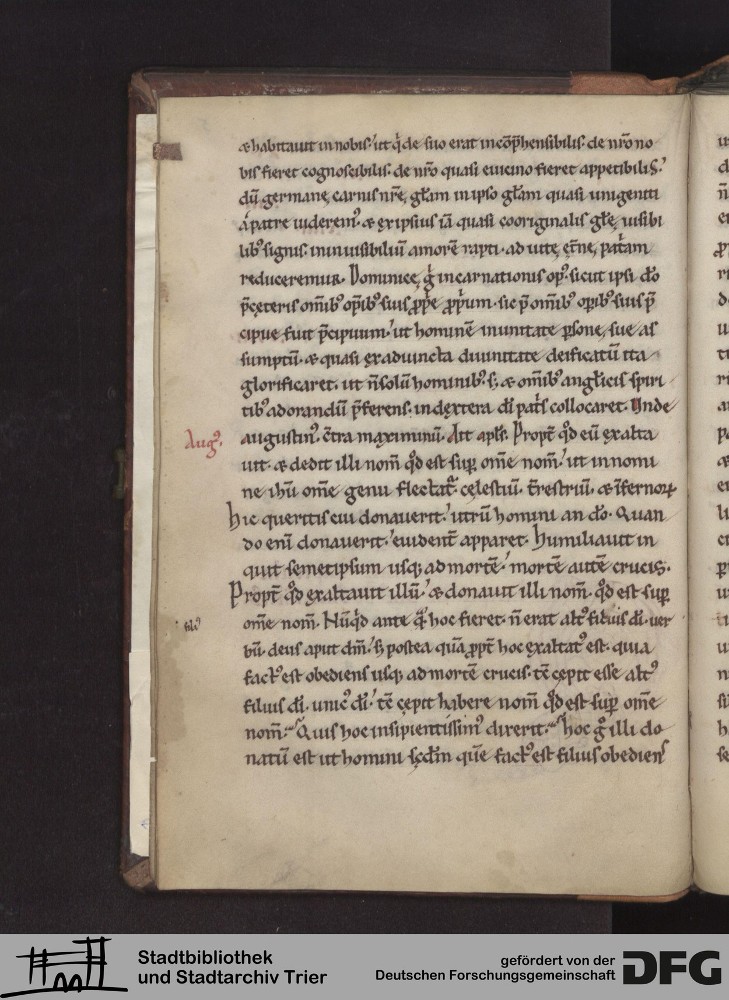 & habitauit in nobis. ut q̇ de suo erat incōp̄hensibilis. de nr̄o no
bis fieret cognoscibilis. de nr̄o quasi euicino fieret appetibilis.
dū germanę carnis nr̄ę, gl̄am in ipso gl̄am quasi unigeniti
a patre uiderem᷒. & ex ipsius iā quasi cooriginalis gl̄ę, uisibi
lib᷒ signis. in inuisibiliū amorē rapti. ad uitę et̄nę, pat̄am
reduceremur. Dominicę, g̊ incarnationis op᷒. sicut ipsi dō
p̄ cęteris om̄ib᷒ op̄ib᷒ suis ꝓpe ꝓp̄um. sic p̄ om̄ib᷒ op̄ib᷒ suis p̄
cipue fuit p̄cipuum. ut hominē in unitate ꝑsonę, suę as
sumptū. & quasi ex aduincta diuinitate deificatū ita
glorificaret. ut n̄ solū hominib᷒. s; & om̄ib᷒ angl̄icis spiri
tib᷒ adorandū p̄ferens. in dextera dī pat̄s collocaret. Unde
Aug᷒.
augustin᷒. c̄tra maximinū. Ait apl̄s. Propt̄ qd̄ eū exalta
uit. & dedit illi nom̄ qd̄ est suꝑ om̄e nom̄. ut in nomi
ne ih̄u om̄e genu flectat᷒. cęlestiū. t̄restriū. & īfernoꝝ
hic queritis cui donauerit. utrū homini an dō. Quan
do enī donauerit. euident̄ apparet. Humiliauit in
quit semetipsum usq; ad mortē. mortē autē crucis.
Propt̄ qd̄ exaltauit illū. & donauit illi nom̄ qd̄ est suꝑ
om̄e nom̄. Nūqd̄ ante q̄ hoc fieret. n̄ erat alt᷒ filius dī. uer
fili᷒
bū. deus aput dm̄. s; postea quā ꝓpt̄ hoc exaltat᷒ est. quia
fact᷒ est obediens usq; ad mortē crucis. t̄c cępit esse alt᷒
filius dī. unic᷒ dī. t̄c cępit habere nom̄ qd̄ est suꝑ om̄e
nom̄. Quis hoc insipientissim᷒ dixerit. hoc g̊ illi do
natū est ut homini sc̄dm̄ quē fact᷒ est filius obediens
Stadtbibliothek
und Stadtarchiv Trier
gefördert von der
Deutschen Forschungsgemeinschaft
DFG